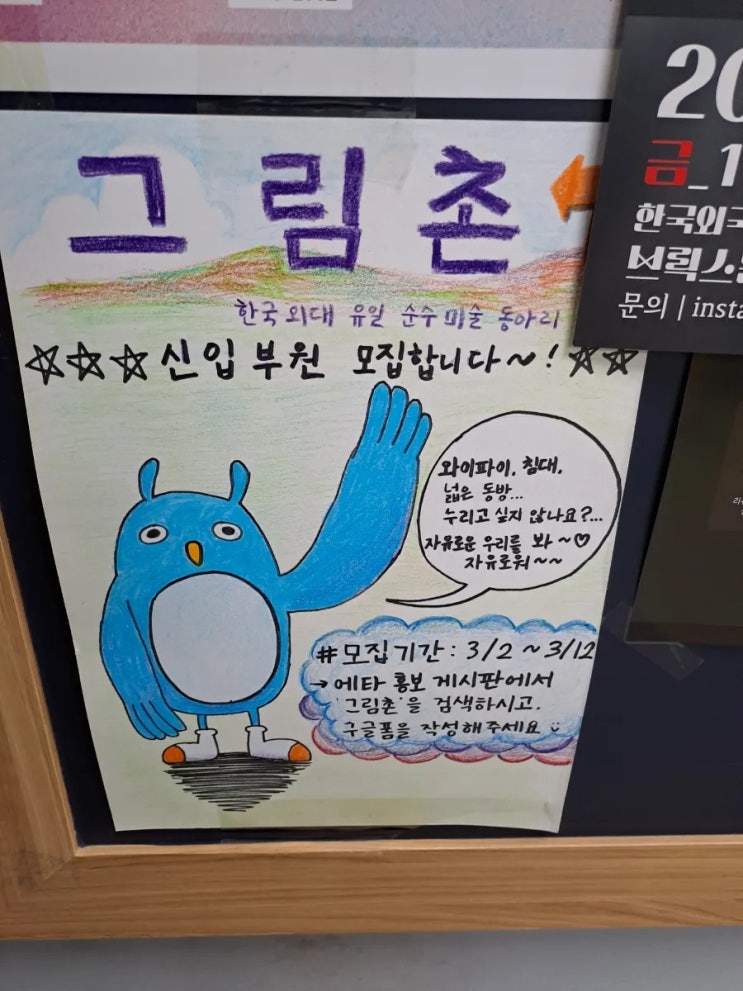 그림촌
한국외대 유일 순수 미술 동아리
☆☆☆신입 부원 모집합니다~!☆☆
와이파이, 침대,
넓은 동방...
누리고 싶지 않나요?...
자유로운 우리를 봐~♡
자유로워~~
#모집기간: 3/2 ~ 3/12
→에타 홍보 게시판에서
'그림촌'을 검색하시고,
구글폼을 작성해주세요
20
금_1
한국외국
문의 | insta